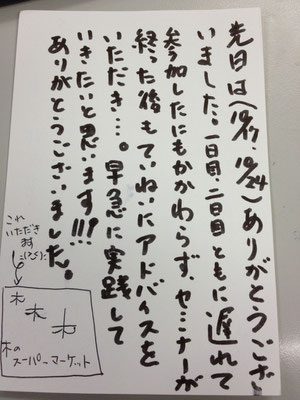 先日は(10/17・10/24)ありがとうござ
いました。一日目・二日目ともに遅れて
参加したにもかかわらず、セミナーが
終った後もていねいにアドバイスを
いただき…。早急に実践して
いきたいと思います!!!
ありがとうございました。
これ
いただき
ます
木
木
木
木の
スーパーマーケット